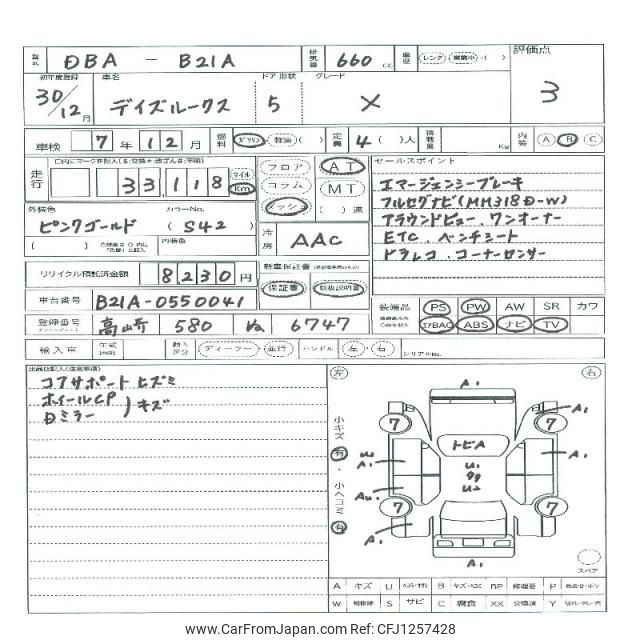 型式 DBA - B21A 排気量 660 cc 車歴 レンタ・営業中・( ) 評価点 3
初年度登録 車名 ドア形状 グレード
30/12月 デイズルークス 5 X
車検 7年12月 燃料 ガソリン・軽油・( ) 定員 4( )人 積載量 Kg 内装 A B C
走行 33,118 マイル Km
フロア AT
コラム MT
メッシュ ( )速
セールスポイント
エマージェンシーブレーキ
フルセグナビ(MM318D-W)
アラウンドビュー、ワンオーナー
ETC、ベンチシート
ドラレコ、コーナーセンサー
外装色 カラーNo. 冷房 AAC
ピンクゴールド (S42)
内装色
リサイクル預託済金額 8230円 新車保証書
保証書 取扱説明書
車台番号 B21A-0550041
装備品 PS PW AW SR カワ
エアBAG ABS ナビ TV
登録番号 高崎 580 ぬ 6747
輸入車 年式 輸入区分 ディーラー・並行 ハンドル 左・右 シリアルNo.
出品店記入(注意事項)
コアサポートヒズミ
ホイールCP
Dミラー )キズ
左 右
小キズ 有・小ヘコミ 有
A1
A1
7 7
トビA
A1 U1 A1
U2
7 7
A1 A1
A1
スペア
A キズ U B キズ・ヘコ BP 修理跡 P
W 補修跡 S サビ C 腐食 XX 交換済 Y
www.CarFromJapan.com - Photo ID: CFJ1257428